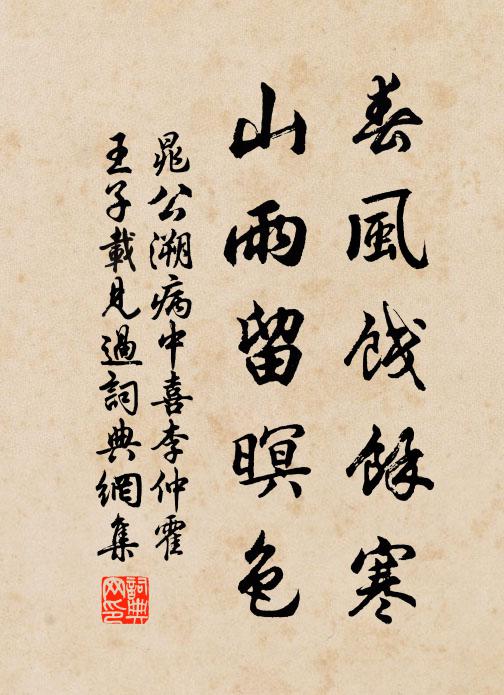 春風餞餘寒
山雨留暝色
晁公溯病中喜李仲霍
王子載見過詞典網集
詞典網印